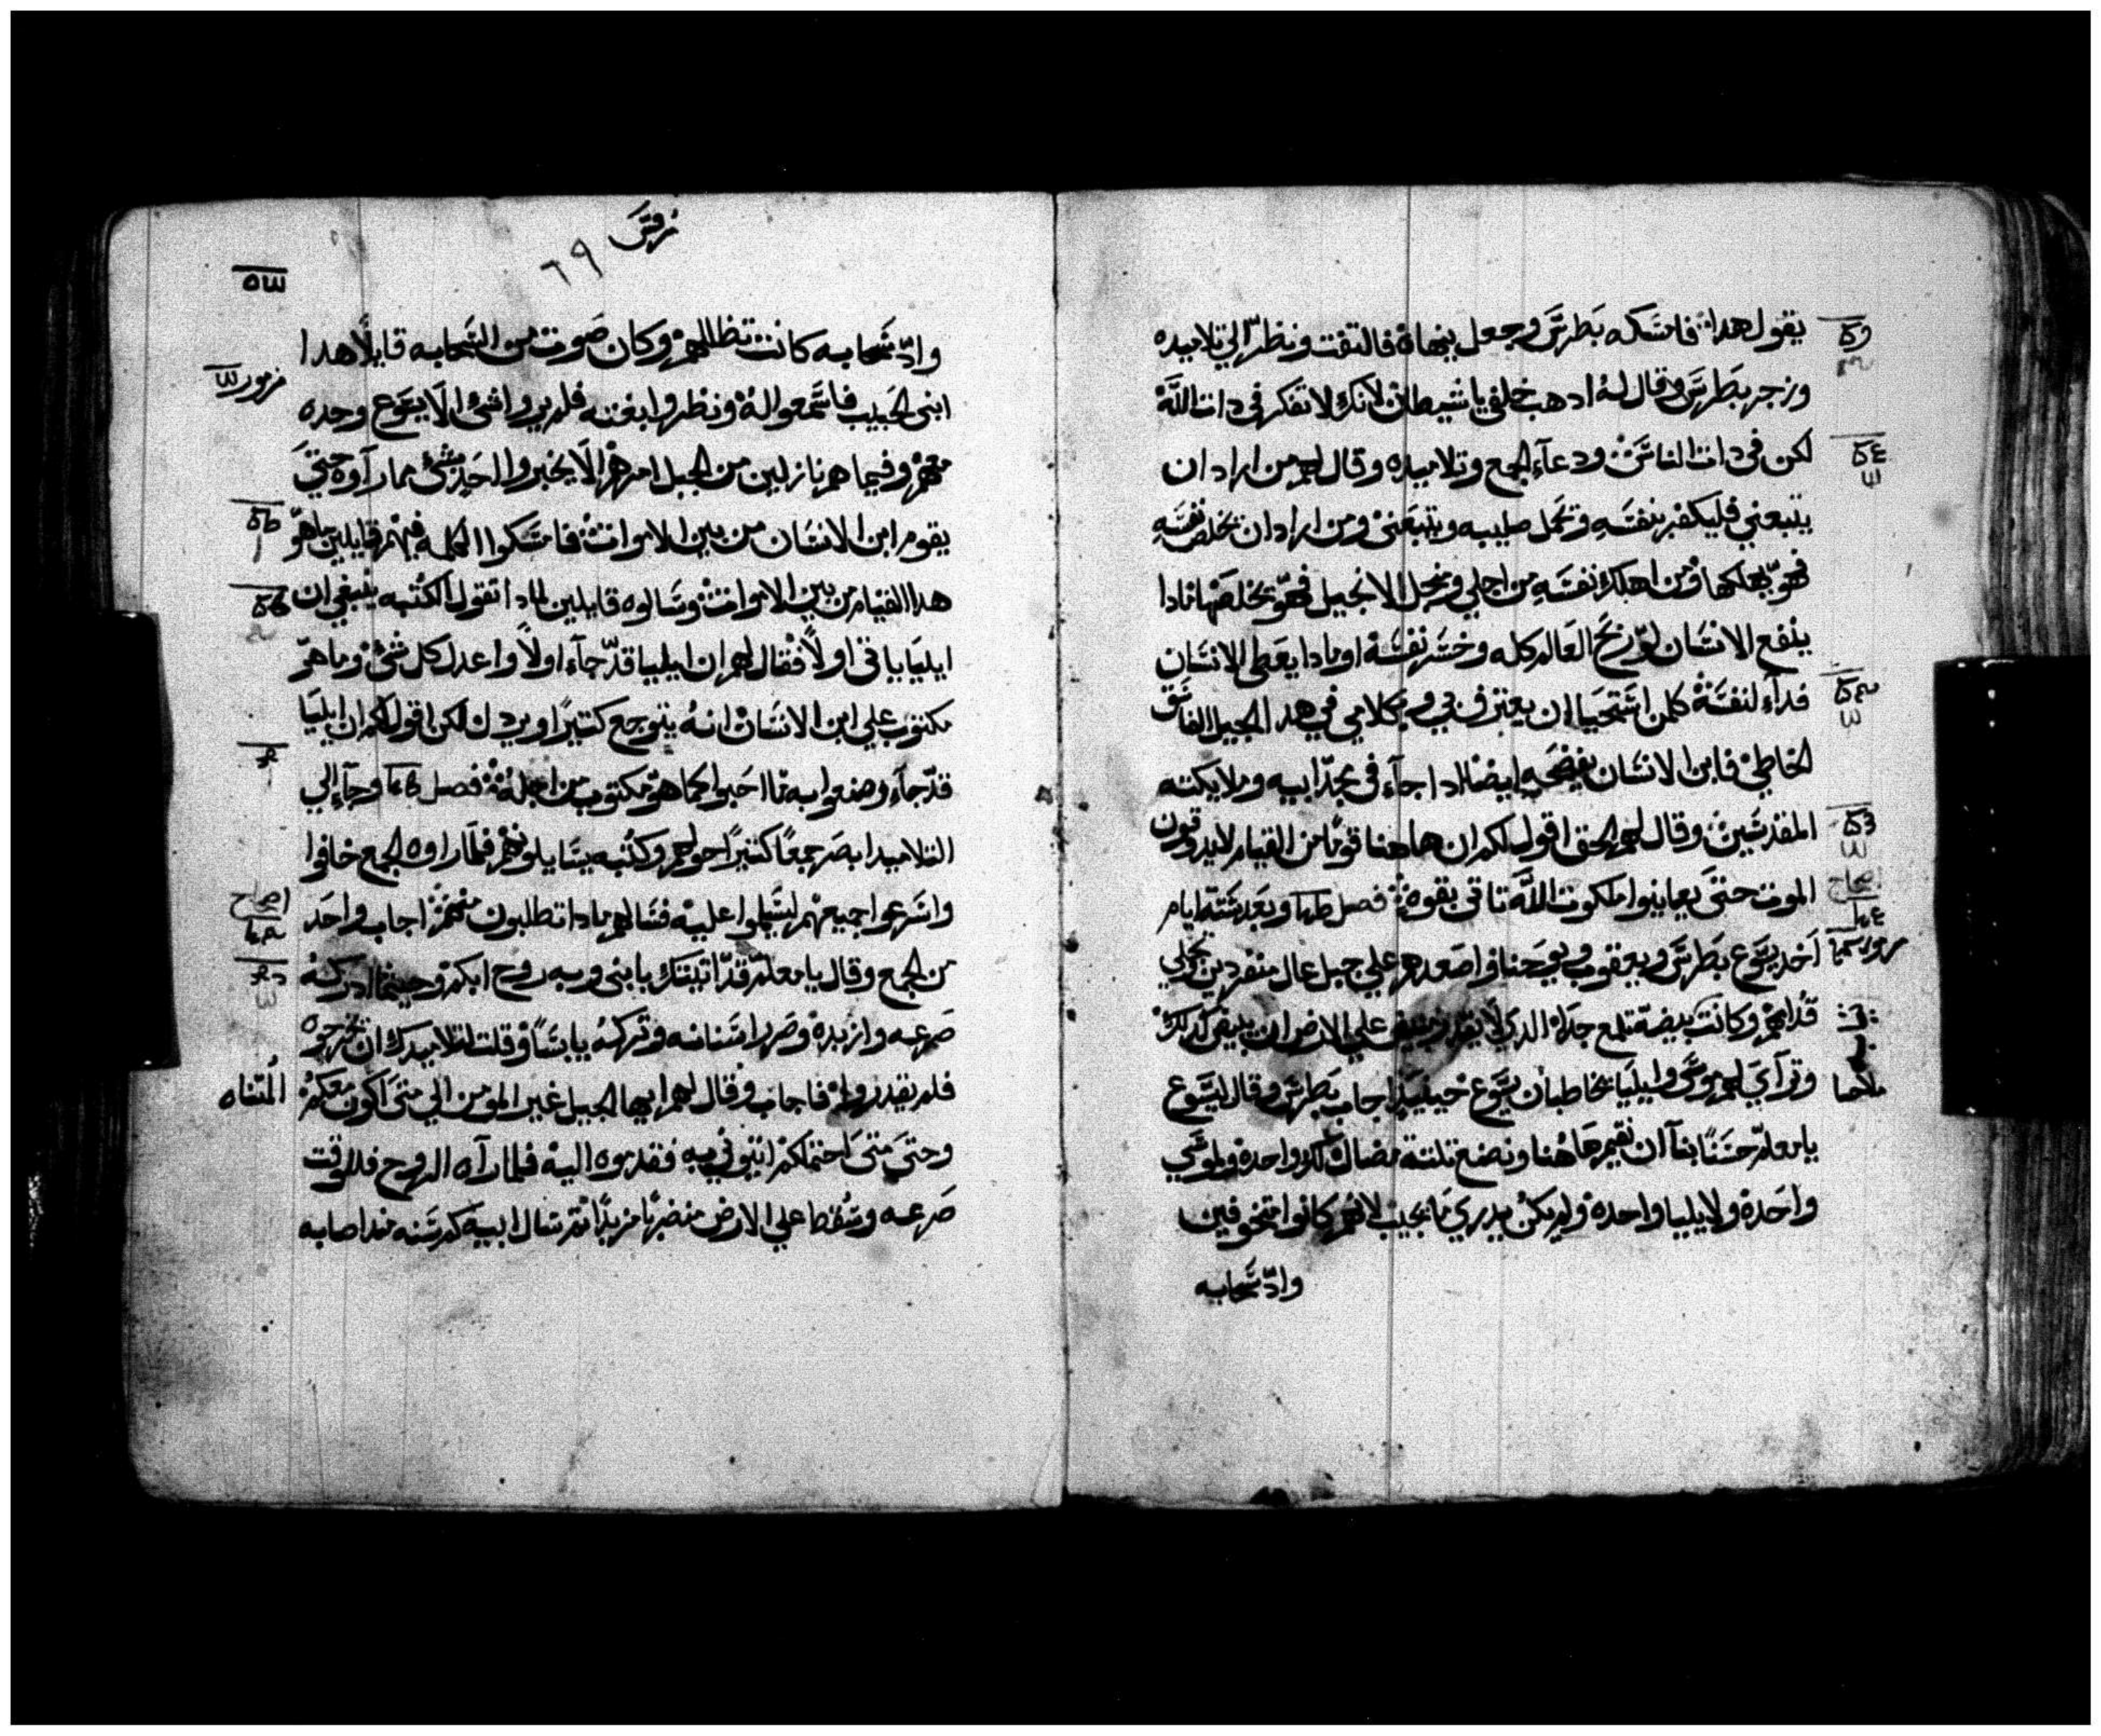 يقول هدا فامسكه بطرس وجعل ينهاه فالتفت ونظر الي تلاميده
وزجر بطرس وقال له ادهب خلفي يا شيطان لانك لا تفكر في دات الله
لكن في دات الناس ودعاء الجمع وتلاميده وقال لهم من اراد ان
يتبعني فليكفر بنفسه ويحمل صليبه ويتبعني ومن اراد ان يخلص نفسه
فهو يهلكها ومن اهلك نفسه من اجلي ومن اجل الانجيل فهو يخلصها مادا
ينفع الانسان لو ربح العالم كله وخسر نفسه او مادا يعطي الانسان
فداء لنفسه كلمن استحيا ان يعترف بي وبكلامي في هدا الجيل الفاسق
الخاطي فابن الانسان يفضحه ايضا ادا جاء في مجد ابيه وملايكته
المقدسين وقال لهم الحق اقول لكم ان هاهنا قوما من القيام لا يدوقون
الموت حتى يعاينوا ملكوت الله تاتي بقوة فصل وبعد ستة ايام
اخد يسوع بطرس ويعقوب ويوحنا واصعدهم علي جبل عال منفردين تجلي
قدامهم وكانت بيضه تلمع جدا الدي لا يقدر مبيض علي الارض ان يبيض كدلك
وتراي لهم موسى وايليا يخاطبان يسوع حينيد اجاب بطرس وقال ليسوع
يا معلم حسنا بنا ان نقيم هاهنا ونصنع تلتة مضال لك واحدة ولموسي
واحدة ولايليا واحدة ولم يكن يدري ما يجيب لانهم كانوا متخوفين
واد سحابه
مرقس
٦٩
واد سحابه كانت تظللهم وكان صوت من السحابه قايلا هدا
ابني الحبيب فاسمعوا له ونظروا بغته فلم يروا شئ الا يسوع وحده
معهم وفيما هم نازلين من الجبل امرهم الا يخبروا احد بشئ مما راوه حتي
يقوم ابن الانسان من بين الاموات فامسكوا الكلمه فيهم قايلين ما هو
هدا القيام من بين الاموات وسالوه قايلين لمادا تقول الكتبه ينبغي ان
ايليا ياتي اولا فقال لهم ان ايليا قد جاء اولا واعدل كل شئ وما هو
مكتوب علي ابن الانسان انه يتوجع كتيرا ويردل لكن اقول لكم ان ايليا
قد جاء وصنعوا به ما احبوا كما هو مكتوب من اجله فصل وجاء الي
التلاميد ابصر جمعا كتيرا حولهم وكتبه يسايلونهم فلما راوه الجمع خافوا
واسرعوا جميعهم ليسلموا عليه فسالهم مادا تطلبون منهم اجاب واحد
من الجمع وقال يا معلم قد اتيتك بابني وبه روح ابكم وحيثما ادركه
صرعه وازبده وصرير اسنانه وتركه يابسا وقلت لتلاميدك ان تخرجوه
فلم يقدروا فاجاب وقال لهم ايها الجيل غير المومن الي متى اكون معكم
وحتى متى احتملكم ايتوني به فقدموه اليه فلما راه الروح فللوقت
صرعه وسقط علي الارض مضربا مزبدا تم سال ابيه كم سنه مند اصابه